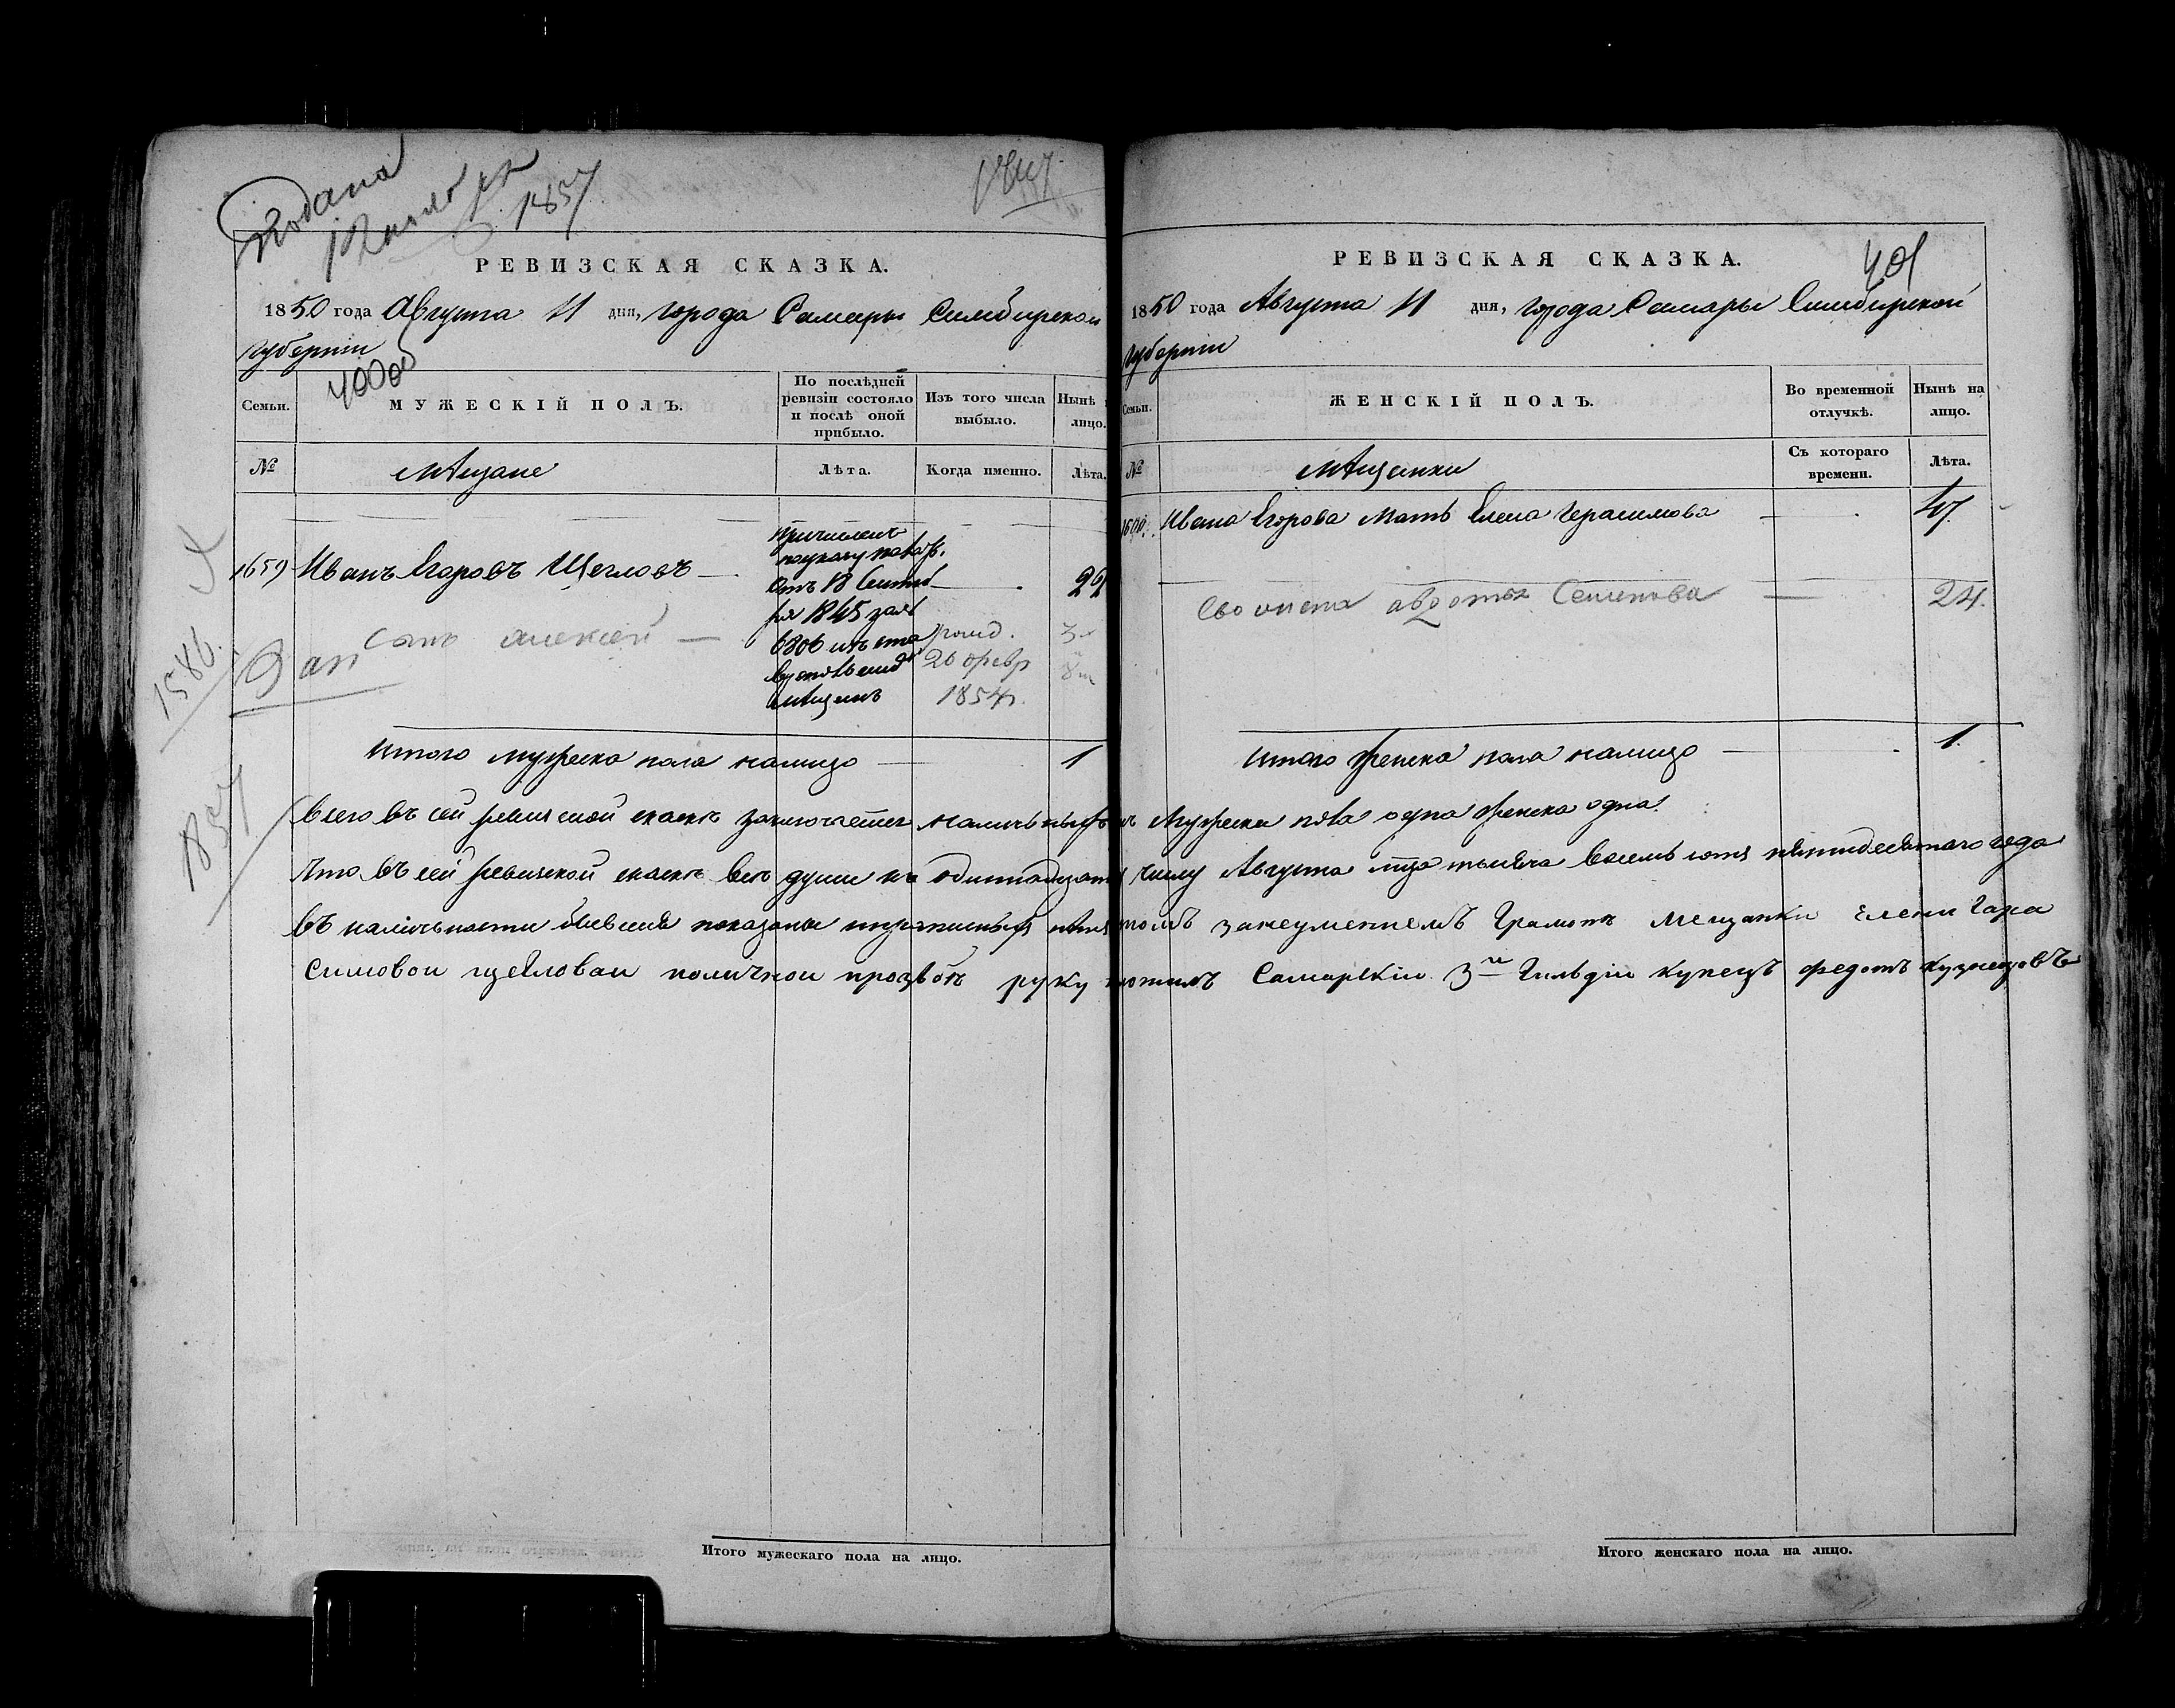 Подана
12 ноября
1857
РЕВИЗСКАЯ СКАЗКА.
1850 года Августа 11 дня, города Самары Симбирской
губернии
400об
Семьи.
МУЖЕСКІЙ ПОЛЪ.
По послѣдней ревизіи состояло и послѣ оной прибыло.
Изъ того числа выбыло.
Нынѣ
лицо.
№
мѣщане
Лѣта.
Когда именно.
Лѣта.
1659 Иванъ Егоровъ Щегловъ
причисленъ
по указу
отъ 18 Сентяб
ря 1845 за №
6806 изъ
мѣщанъ
22
Сынъ Алексей
рожд.
26 февр
1854 г.
3 г
8 м
1586.
1857
итого мужеска пола налицо 1
всего въ сей ревизской сказкѣ заключается наличныхъ
Что въ сей ревизской сказкѣ всѣ души къ одиннадцатому
въ наличности бывшія показаны и прописныхъ нѣтъ
Симовой Щегловай поличной прозбѣ руку
Итого мужескаго пола на лицо.
401
РЕВИЗСКАЯ СКАЗКА.
1850 года Августа 11 дня, города Самары Симбирской
губернии
Семьи.
ЖЕНСКІЙ ПОЛЪ.
Во временной отлучкѣ.
Нынѣ на лицо.
№
мѣщанки
Съ котораго времени.
Лѣта.
Ивана Егорова Мать Елена Герасимова 47
Евдотья Семенова 24.
итого женска пола налицо 1.
мужеска пола одна женска одна.
числу Августа мца тысяча восемь сотъ пятидесятаго года
въ томъ занеуменіемъ Грамотѣ мещанки Елены Гара
Самарскій 3й Гильдіи купецъ федотъ Кузнецовъ
Итого женскаго пола на лицо.